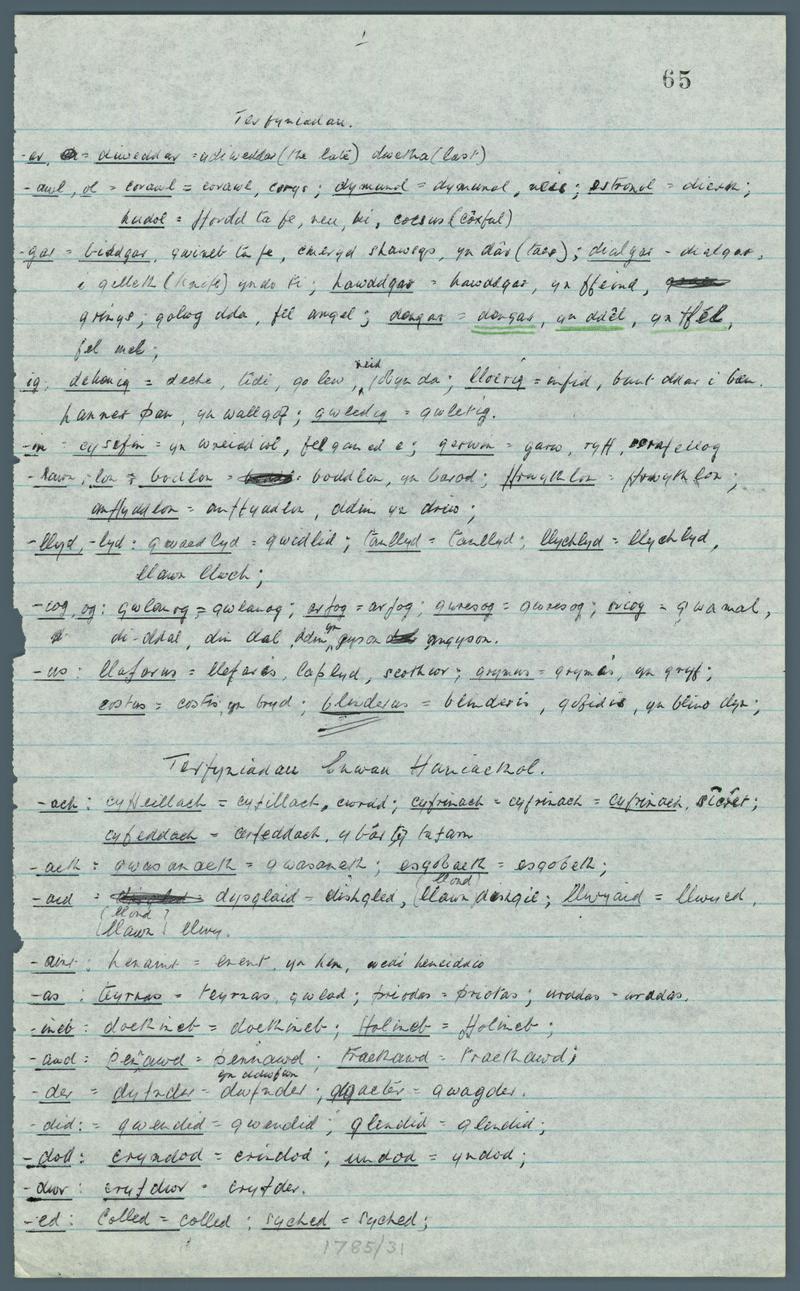 65
Terfyniadau.
-ar, = diweddar = ydiweddar (the late) dwetha (last)
-awl, ol = corawl = corawl, corys; dymunol = dymunol, neis; estronol = dierth;
hudol = ffordd ta fe, neu, hi, coesus
-gar = beiddgar, gwineb ta fe, cmeryd shawens, yn dâr (taer); dialgar - dialgar,
i gilleth (knife) yndo ti; hawddgar = hawddgar, yn ffeind,
grinys; golwg dda, fel angel; dengar = dengar, yn ddêl, yn ffêl,
fel mel;
ig, deheuig = deche, tidi, go lew, neid, lloerig = bant ddar i ben.
hanner pan, yn wallgof; gwledig = gwletig.
-in = cysefin = yn wreiddiol, fel ganed e; gerwin = garw, ryff,
-lawn, -lon = bodlon = boddlon, yn barod; ffrwythlon = ffrwythlon;
anffyddlon = anffyddlon, ddim yn driw;
-llyd, -lyd: gwaedlyd = gwedlid; tanllyd = tanllyd; llychlyd = llychlyd,
llawn llwch;
-iog, og: gwlanog = gwlanog; arfog = arfog; gwresog = gwresog; oriog = gwamal,
di-ddal, din dal, ddim yn gyson anghyson.
-us: llafarus = llefaris, laplyd, grymus = grymis, yn gryf;
costus = costis, yn bryd; blinderus = blinderis, gofidis, yn blino dyn;
Terfyniadau Enwau Haniaethol.
-ach: cyfeillach = cyfillach, cwrdd; cyfrinach = cyfrinach = cyfrinach, sicret;
cyfeddach = cerfeddach, y bâr tafarn
-aeth = gwasanaeth = gwasaneth; esgobaeth = esgobeth;
-aid = dysglaid = dishgled, (llond llawn) dishgil; llwyaid = llwyed,
(llond llawn) llwy.
-aint: henaint = enent, yn hen, wedi heneiddio
-as: teyrnas = teyrnas, gwlad; priodas = priotas; urddas = urddas.
-ineb: doethineb = doethineb; ffolineb = ffolineb;
-awd: pennawd = pennawd; traethawd = traethawd;
yn ddwfwn
-der = dyfnder = dwfnder; gwacter = gwagder.
-did: = gwendid = gwendid; glendid = glendid;
-dod: cryndod = crindod; undod = yndod;
-dwr: cryfdwr = cryfder.
-ed: Colled = colled; syched = syched;
1785/31